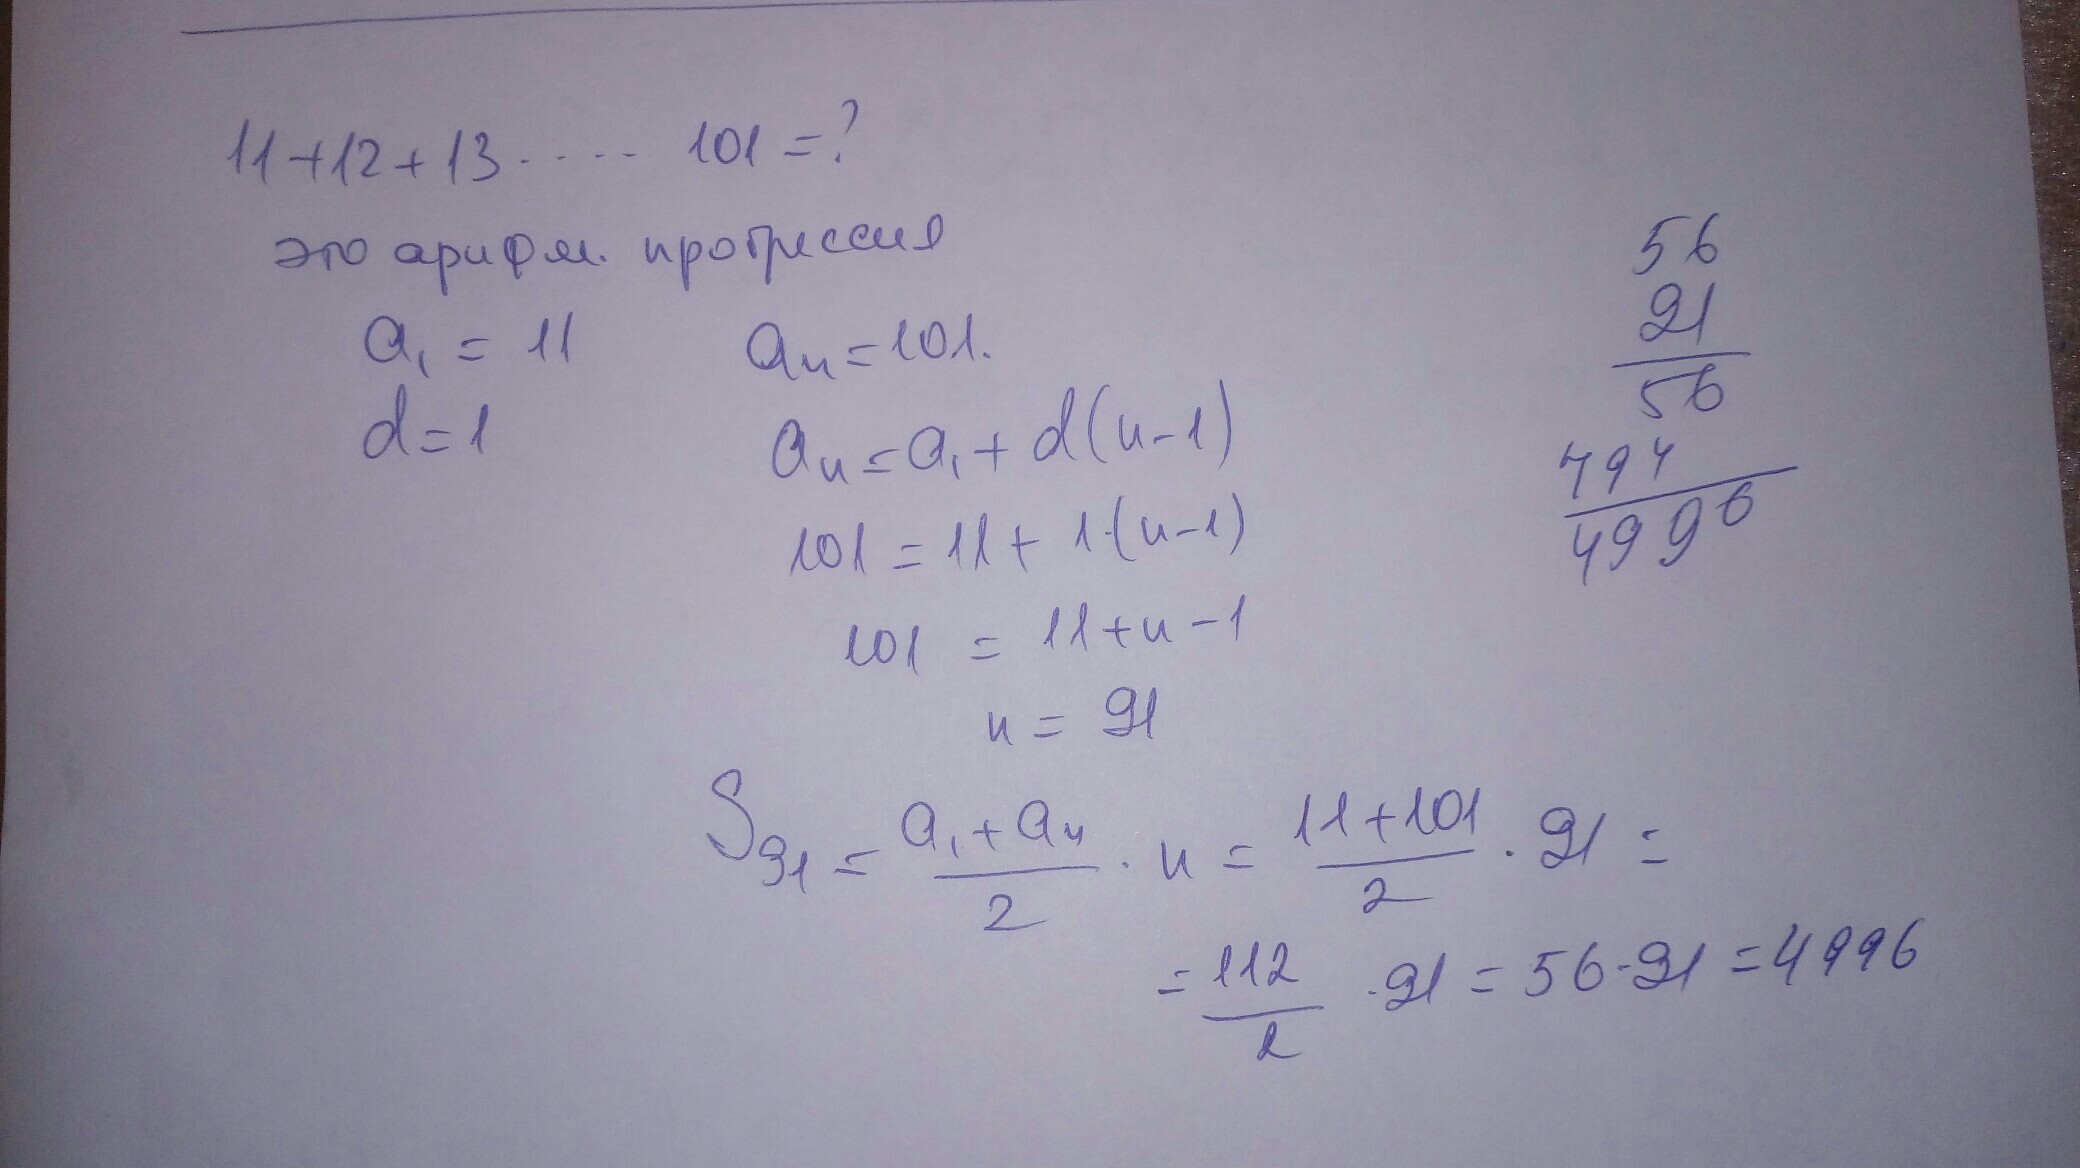 11+12+13..... 101=?
это арифм. прогрессия
a₁ = 11 aₙ=101.
d=1 aₙ=a₁+d(n-1)
101=11+1·(n-1)
101 = 11+n-1
n = 91
S₉₁ = (a₁+aₙ)/2 · n = (11+101)/2 · 91 =
= 112/2 · 91 = 56·91 = 4996
56
91
56
494
4996